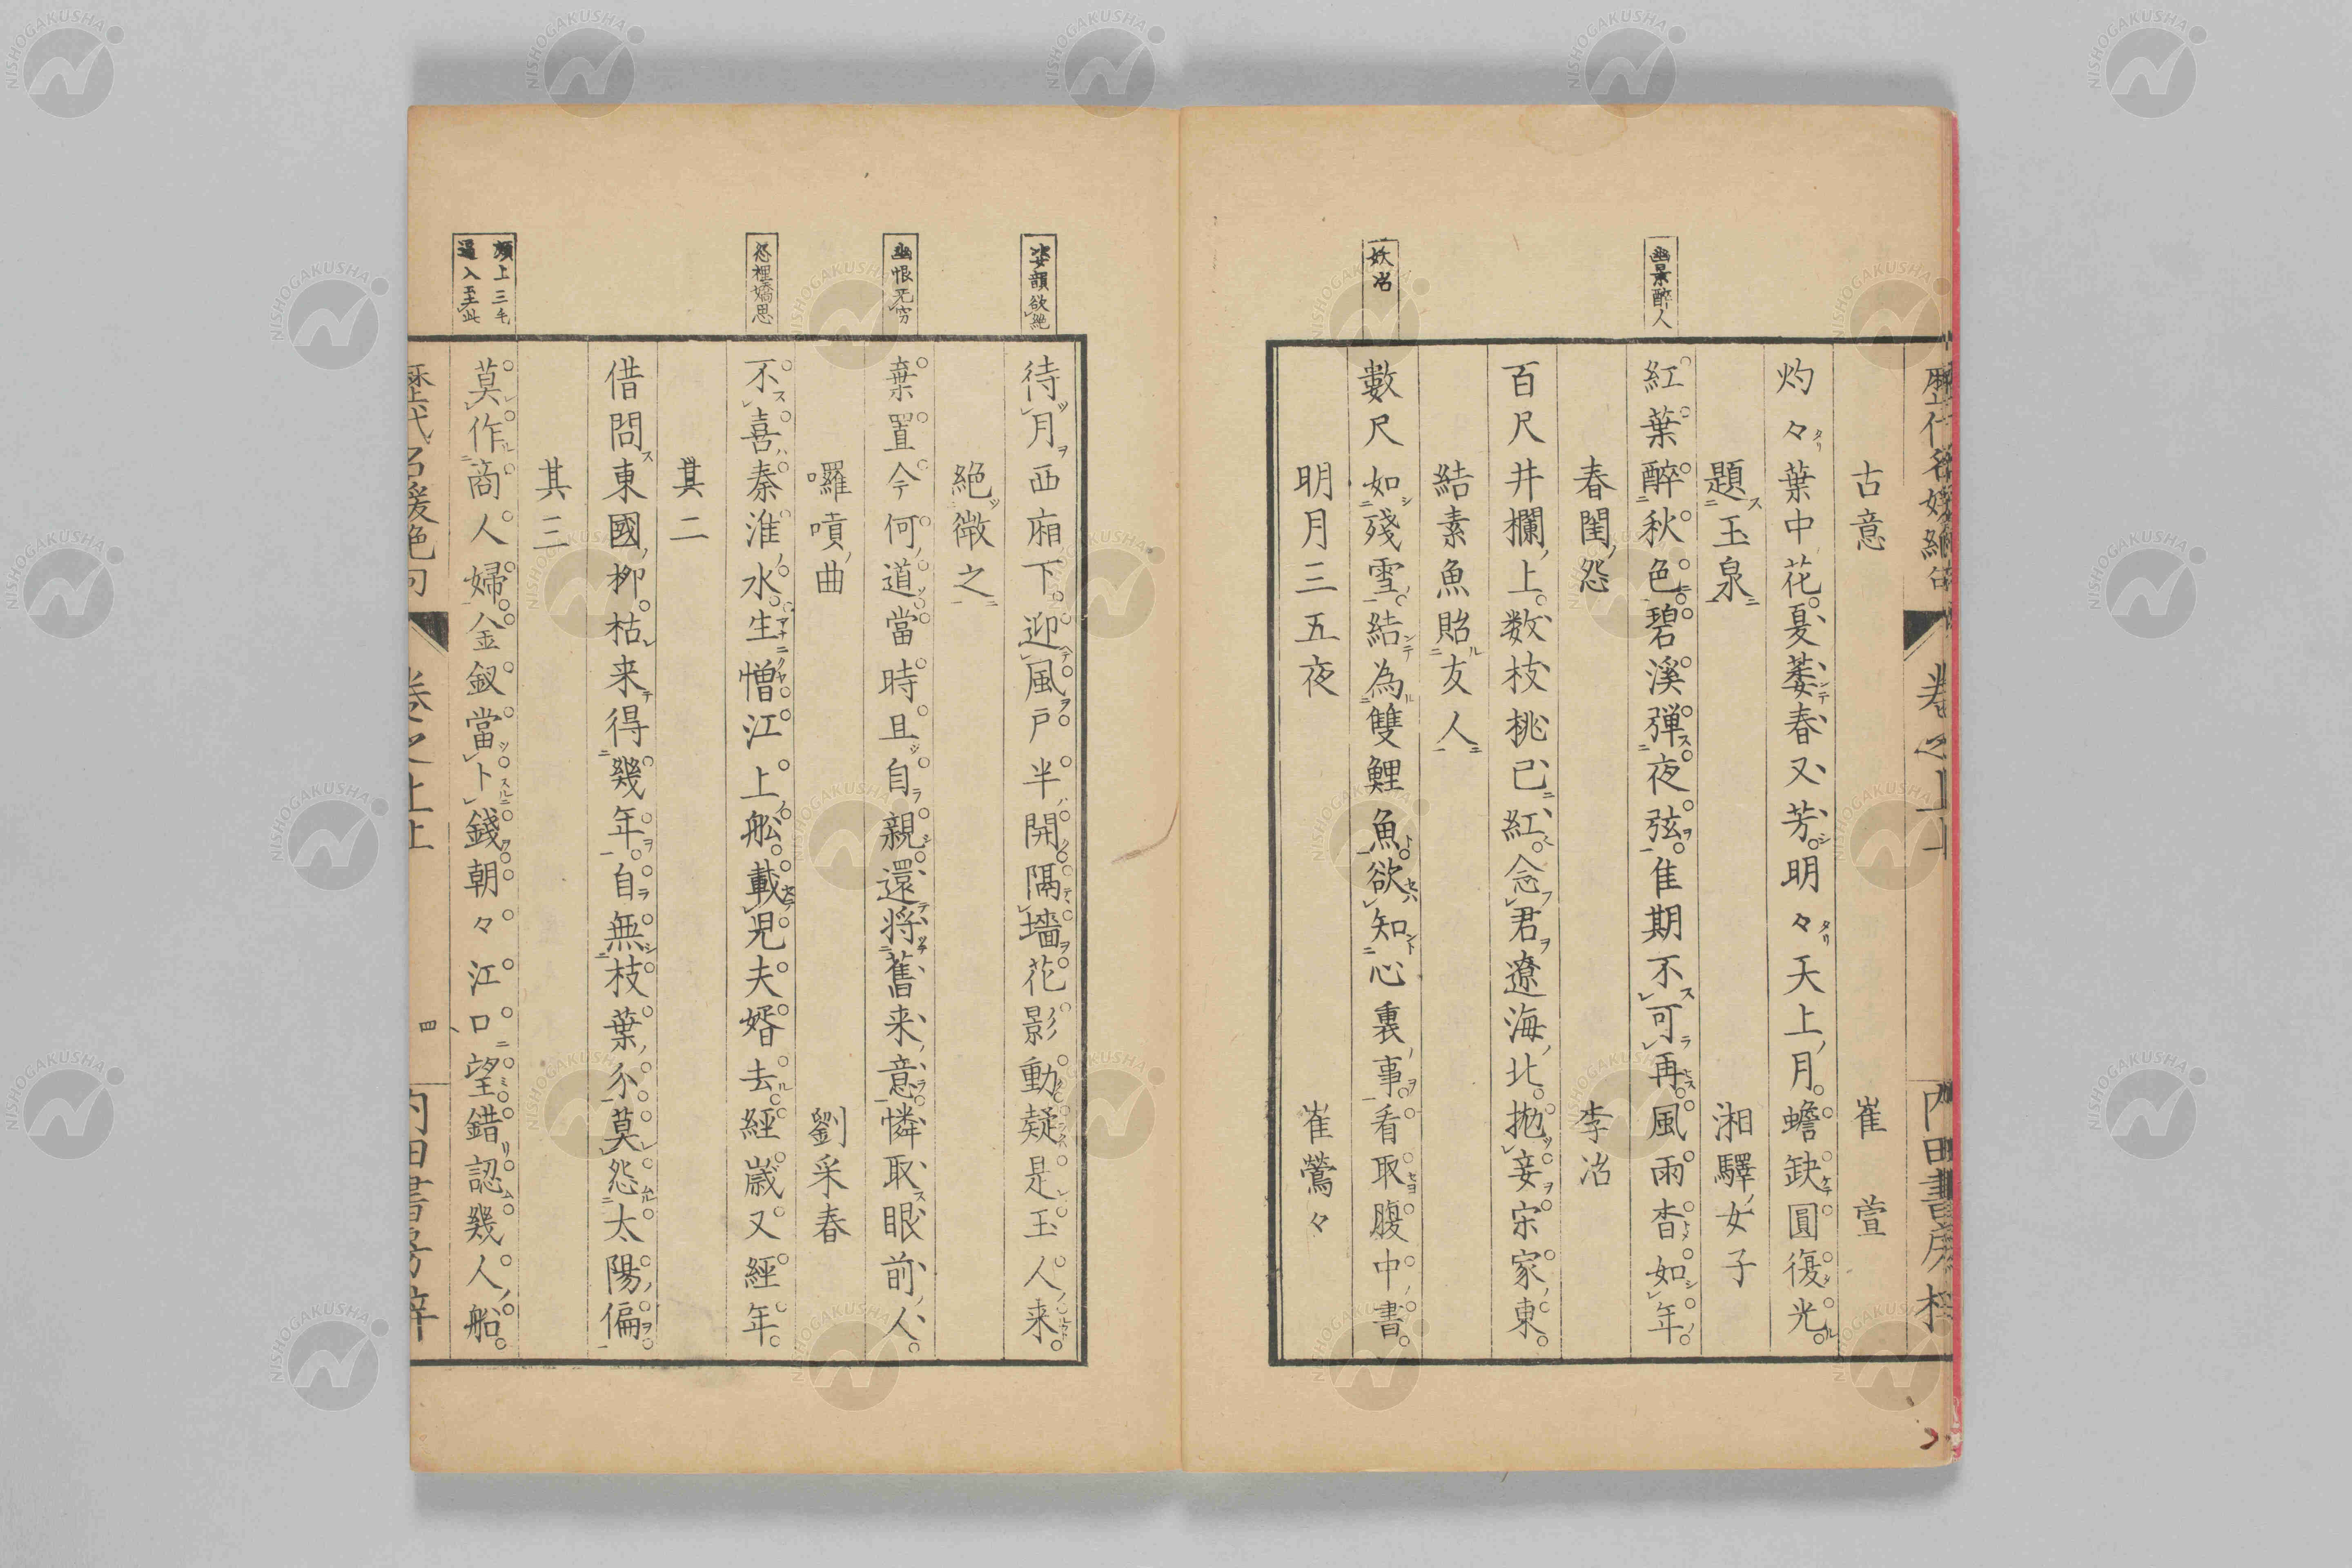 歷代名媛絶句 卷之上上 内田書房梓
古意 崔萱
灼々葉中花夏萎春又芳明々天上月蟾缺圓復光
題玉泉 湘驛女子
幽景醉人
紅葉醉秋色碧溪弾夜弦隹期不可再風雨杳如年
春閨怨 李冶
百尺井欄上数枝桃已紅念君遼海北抛妾宋家東
結素魚貽友人
妖冶
數尺如殘雪結為雙鯉魚欲知心裏事看取腹中書
明月三五夜 崔鶯々
姿韻欲絶
待月西廂下迎風戸半開隔墻花影動疑是玉人来
絶微之
幽恨无穷
棄置今何道當時且自親還将舊来意憐取眼前人
囉嗊曲 劉采春
怨裡嬌思
不喜秦淮水生憎江上舩載児夫婿去經歳又經年
其二
借問東國柳枯来得幾年自無枝葉分莫怨太陽偏
其三
頰上三毛
逼入至此
莫作商人婦金釵當卜錢朝々江口望錯認幾人船
歷代名媛絶句 卷之上上 四 内田書房梓
NISHOGAKUSHA